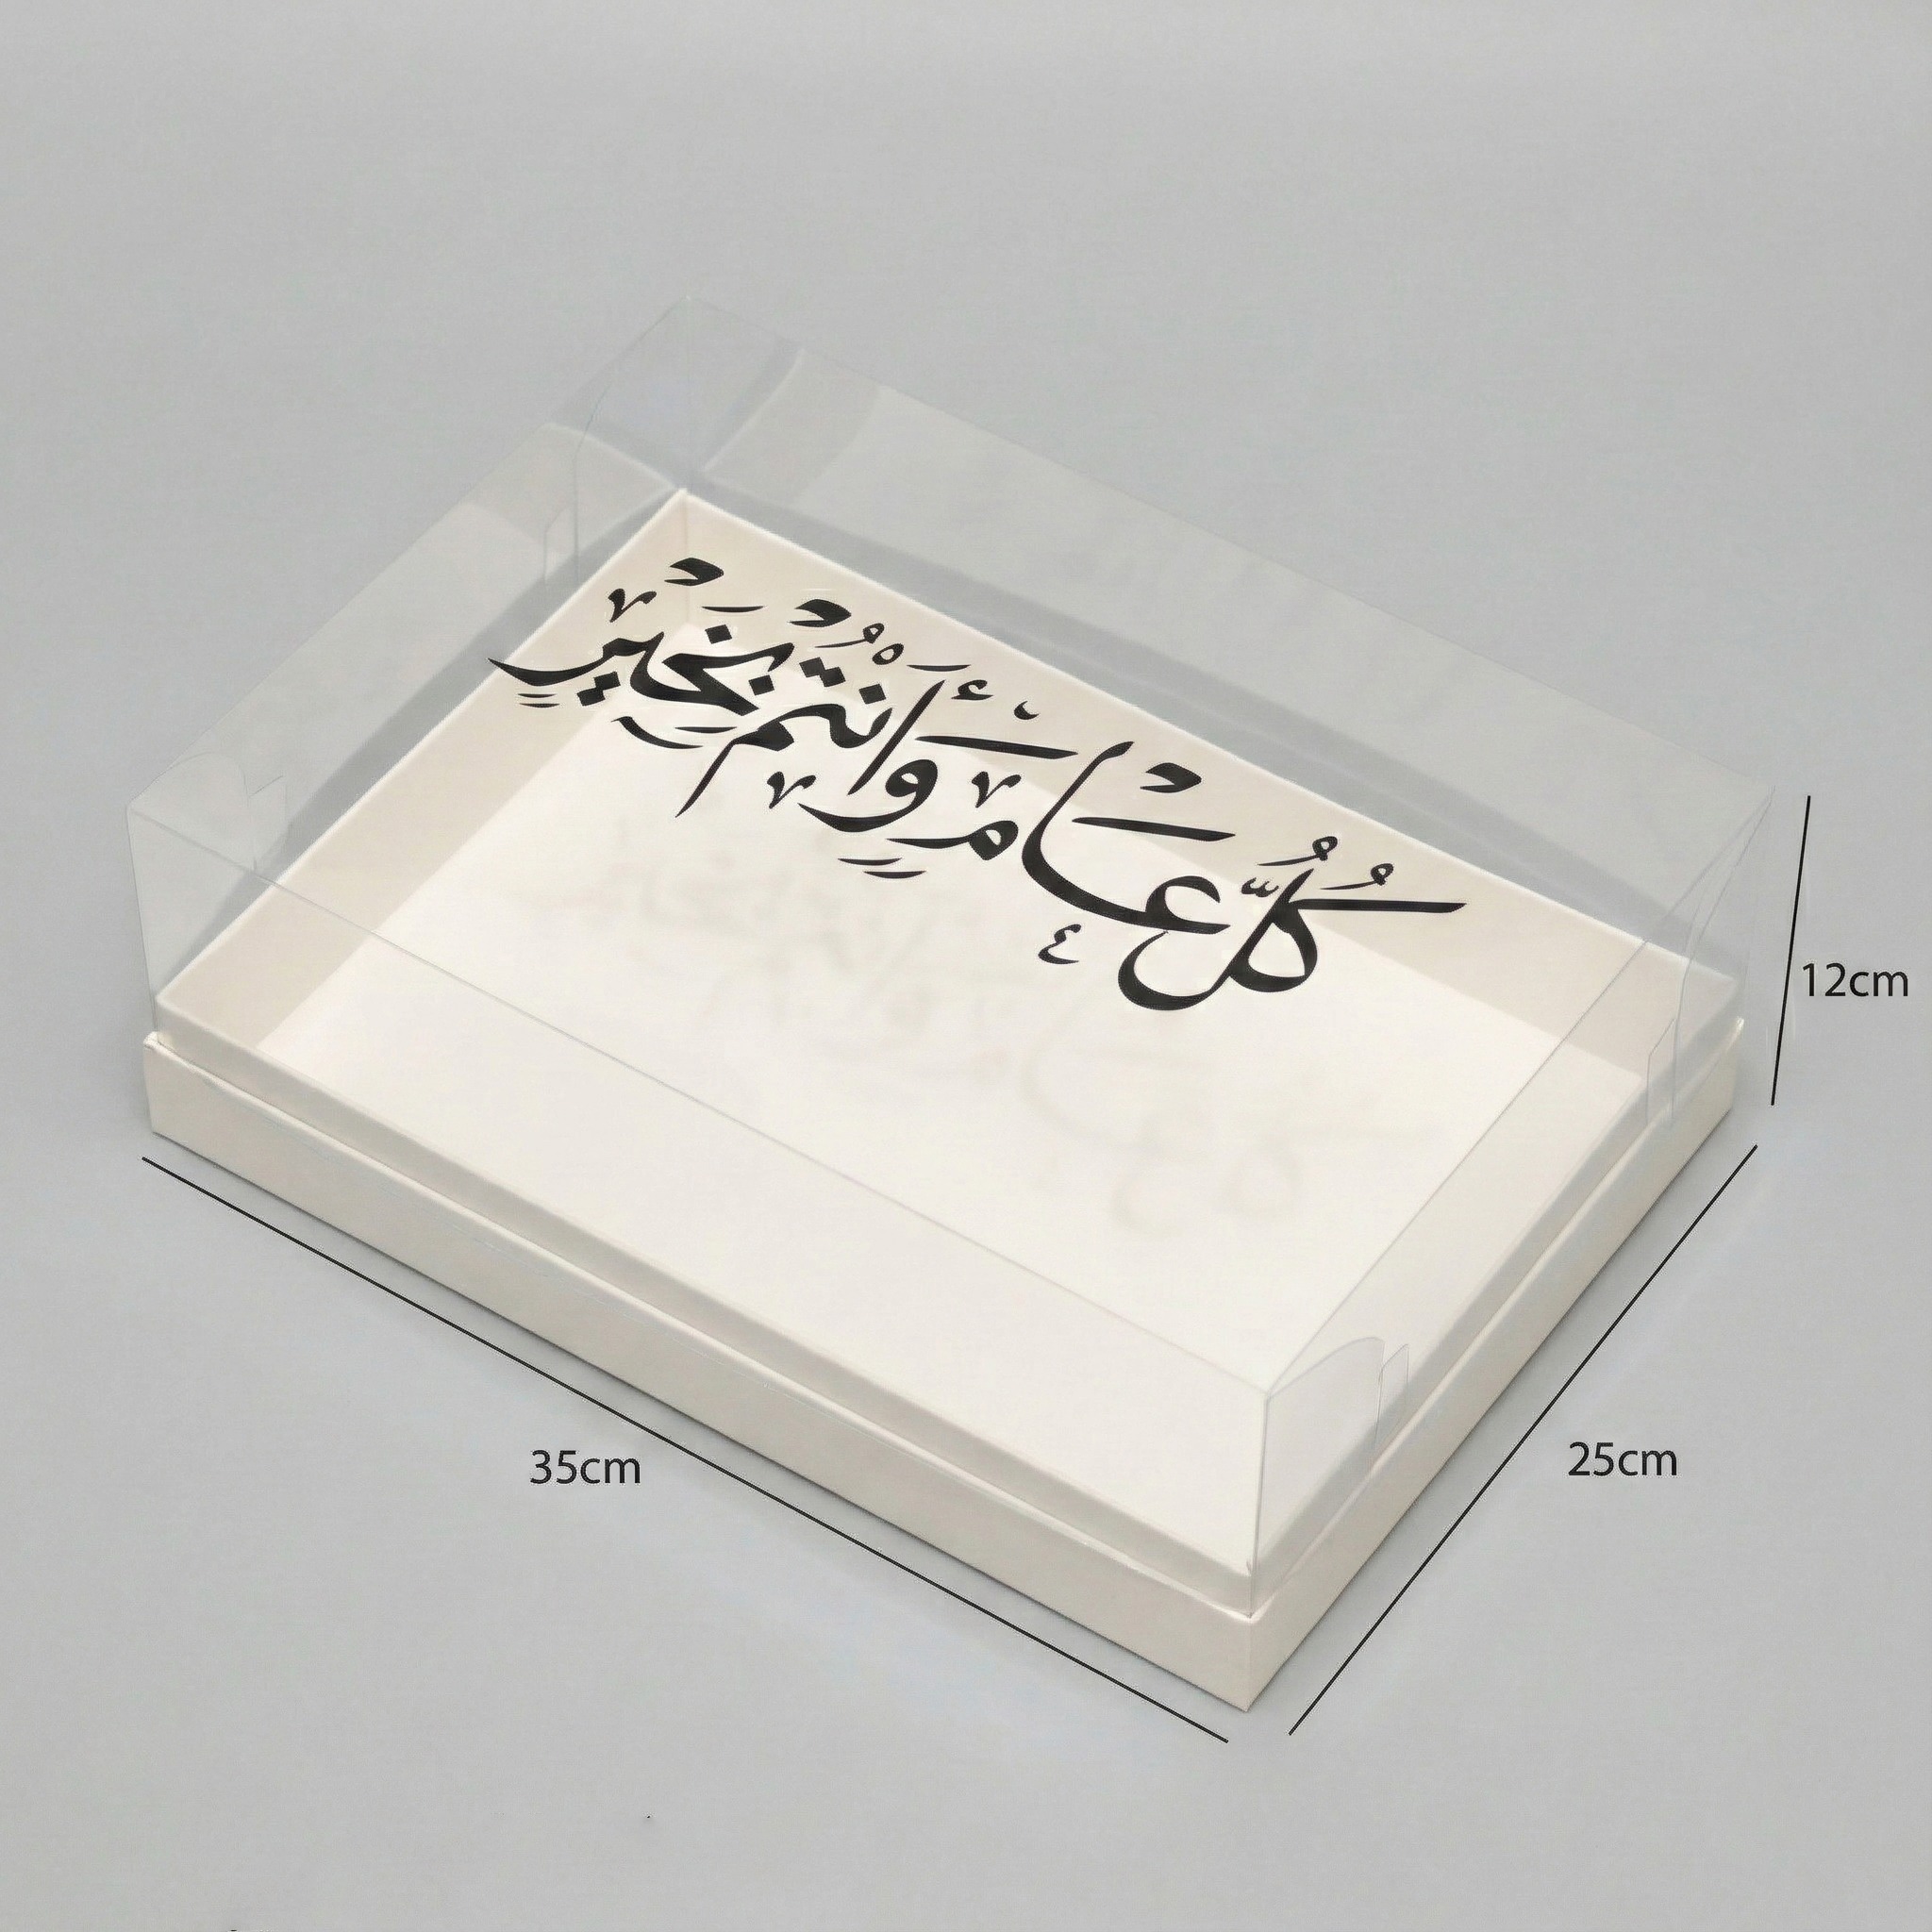 كُلُّ عَامٍ وَأَنْتُمْ بِخَيْرٍ
12cm
25cm
35cm